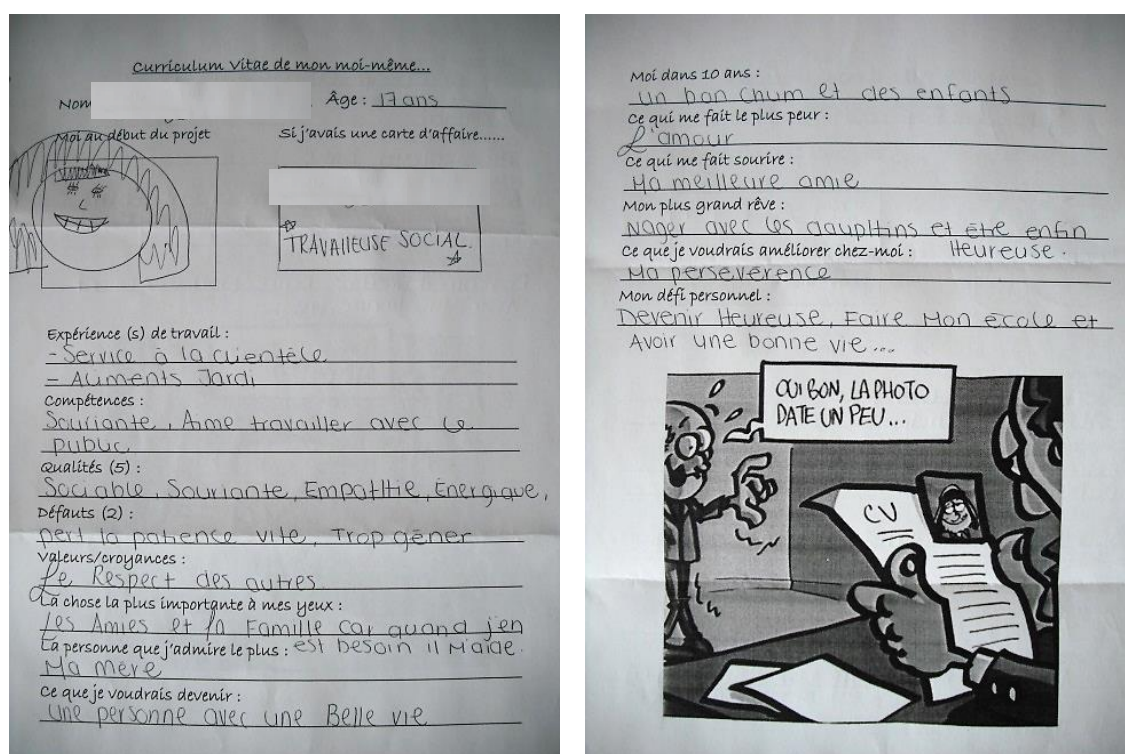 Curriculum Vitae de mon moi-même...
Nom
Âge : 17 ans
Moi au début du projet
Si j'avais une carte d'affaire......
TRAVAILEUSE SOCIAL.
Expérience (s) de travail :
- Service à la clientèle
- Aliments Jardi
Compétences :
Souriante, Aime travailler avec le
public
Qualités (5) :
Sociable, Souriante, Empathie, Énergique,
Défauts (2) :
pert la patience vite, Trop gêner
Valeurs/croyances :
Le Respect des autres
La chose la plus importante à mes yeux :
Les Amies et la Famille car quand j'en
est besoin il M'aide.
La personne que j'admire le plus :
Ma mère
Ce que je voudrais devenir :
Une personne avec une Belle vie
Moi dans 10 ans :
Un bon chum et des enfants
Ce qui me fait le plus peur :
L'amour
Ce qui me fait sourire :
Ma meilleure amie
Mon plus grand rêve :
Nager avec les dauphins et être enfin
Heureuse.
Ce que je voudrais améliorer chez-moi :
Ma perséverence
Mon défi personnel :
Devenir Heureuse, Faire Mon école et
Avoir une bonne vie...
OUI BON, LA PHOTO
DATE UN PEU...
CV